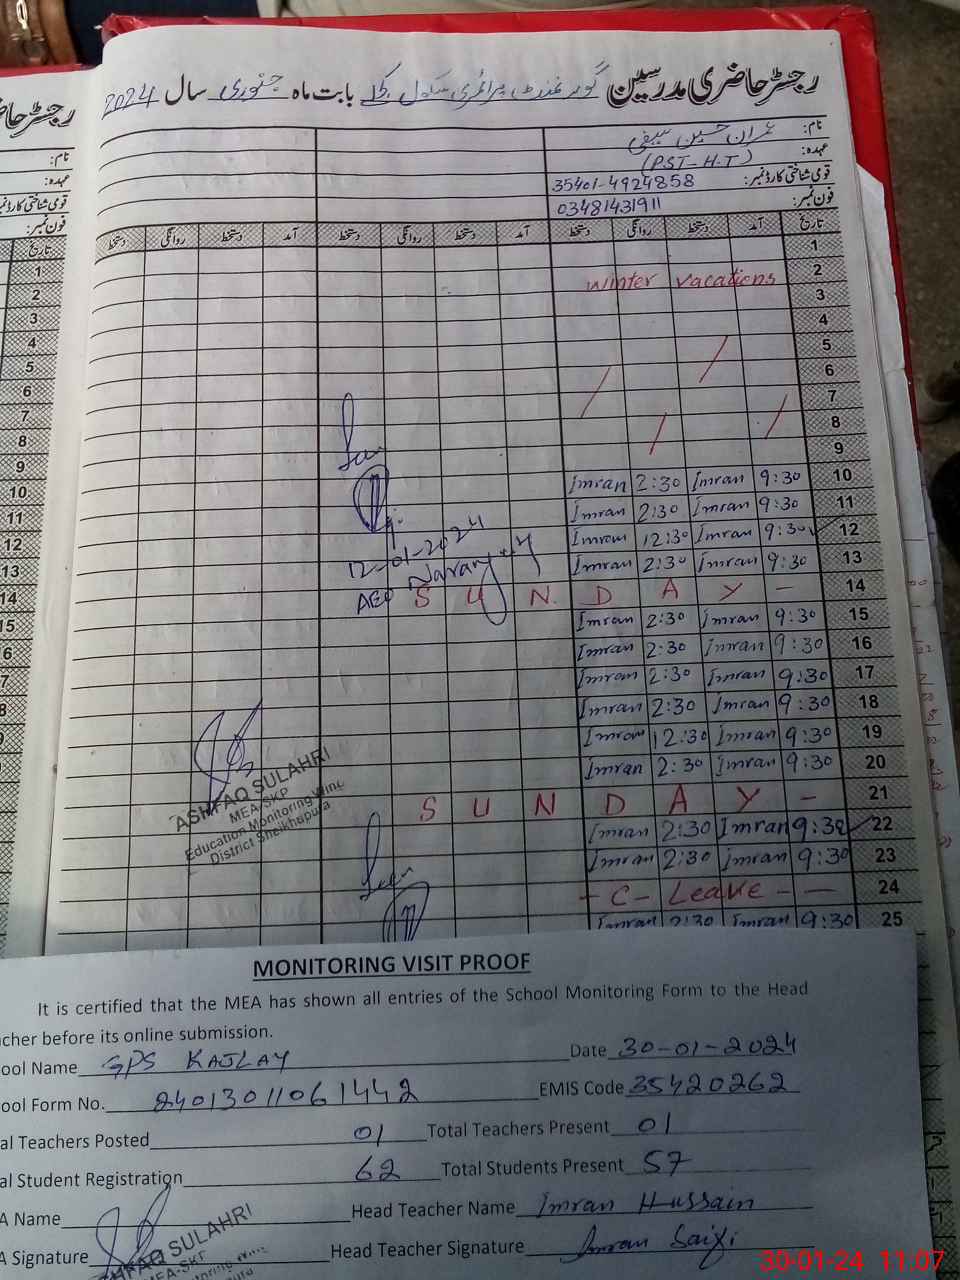 رجسٹر حاضری مدرسین گورنمنٹ پرائمری سکول کجلے بابت ماہ جنوری سال 2024
نام: عمران حسین سیفی
عہدہ: (PST-H.T)
قومی شناختی کارڈ نمبر: 35401-4924858
فون نمبر: 03481431911
تاریخ آمد دستخط روانگی دستخط آمد دستخط روانگی دستخط آمد دستخط روانگی دستخط
1
winter vacations 2
3
4
5
6
7
8
9
Imran 2:30 Imran 9:30 10
Imran 2:30 Imran 9:30 11
Imran 12:30 Imran 9:30 12
Imran 2:30 Imran 9:30 13
12-01-2024
AEO Narang
S U N D A Y - 14
Imran 2:30 Imran 9:30 15
Imran 2:30 Imran 9:30 16
Imran 2:30 Imran 9:30 17
Imran 2:30 Imran 9:30 18
Imran 12:30 Imran 9:30 19
Imran 2:30 Imran 9:30 20
ASHFAQ SULAHRI
MEA-SKP
Education Monitoring Wing
District Sheikhupura
S U N D A Y - 21
Imran 2:30 Imran 9:30 22
Imran 2:30 Imran 9:30 23
- C - Leave - - 24
Imran 2:30 Imran 9:30 25
MONITORING VISIT PROOF
It is certified that the MEA has shown all entries of the School Monitoring Form to the Head
acher before its online submission.
ool Name GPS KAJLAY Date 30-01-2024
ool Form No. 2401301106144 2 EMIS Code 35420262
al Teachers Posted 01 Total Teachers Present 01
al Student Registration 62 Total Students Present 57
A Name Head Teacher Name Imran Hussain
A Signature Head Teacher Signature Imran Saifi
HFAQ SULAHRI
MEA-SKP
30-01-24 11:07